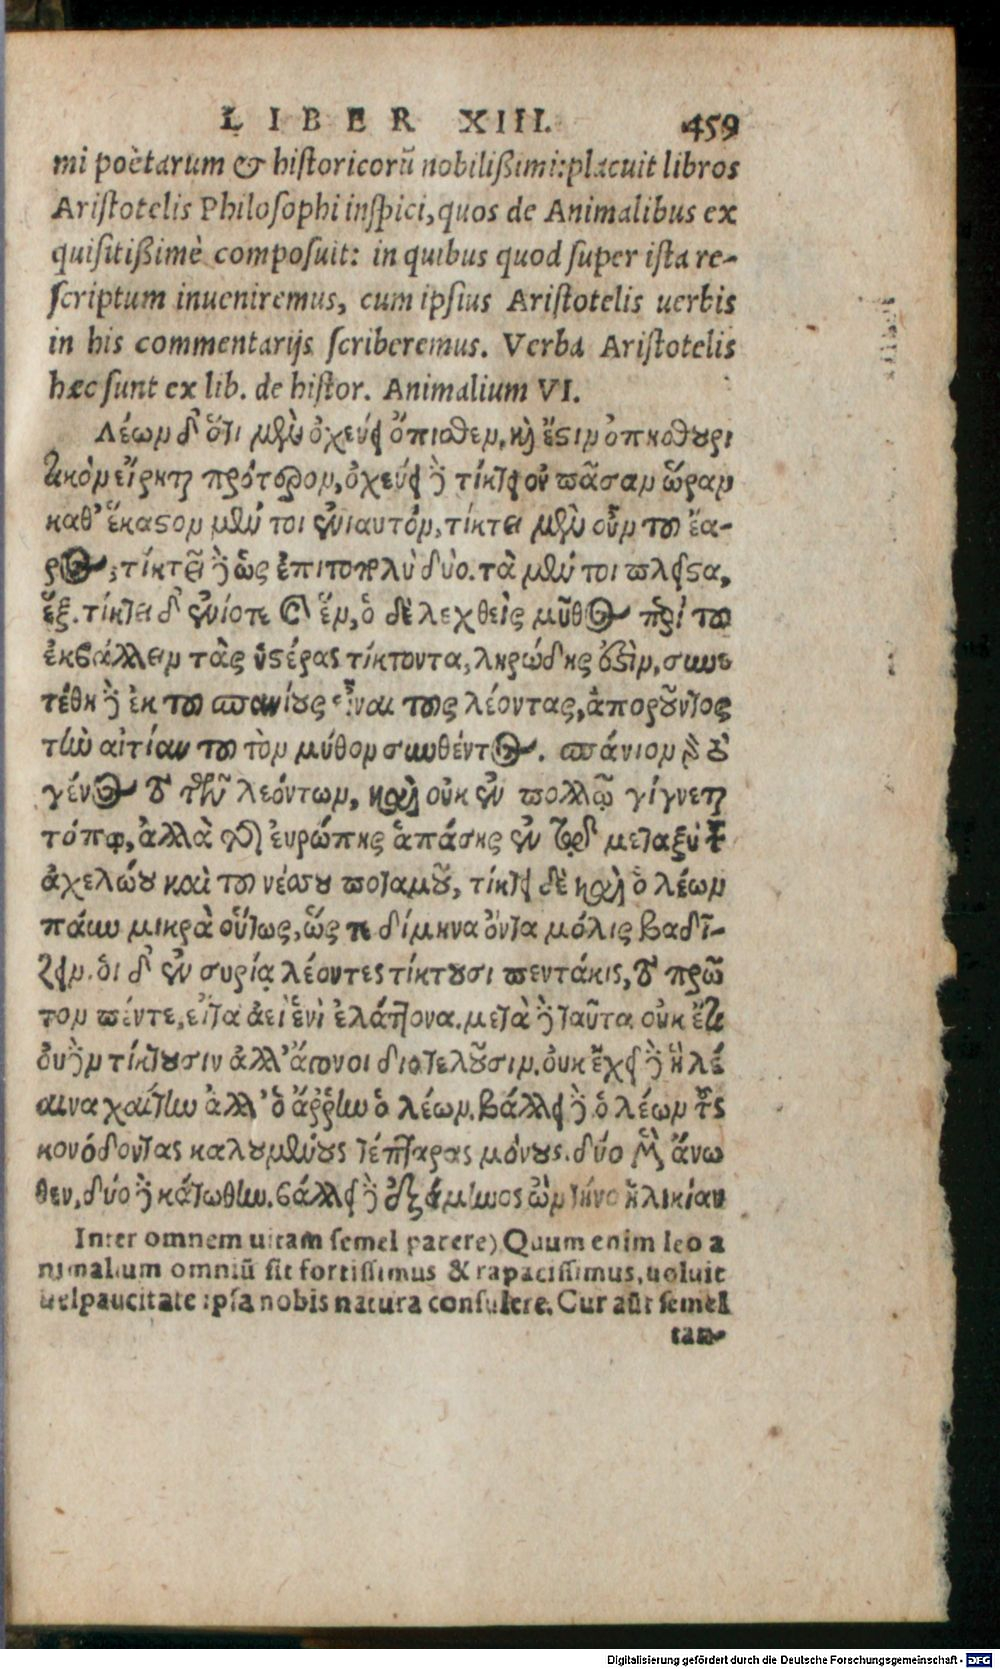 LIBER XIII. 459
mi poëtarum & historicorũ nobilißimi: placuit libros
Aristotelis Philosophi inspici, quos de Animalibus ex
quisitißimè composuit: in quibus quod super ista re-
scriptum inueniremus, cum ipsius Aristotelis uerbis
in his commentarijs scriberemus. Verba Aristotelis
hæc sunt ex lib. de histor. Animalium VI.
Λέων δ' ὅτι μὲν ὀχεύει ὄπισθεν, καὶ ἔστιν ὀπισθουρη
τικὸν εἴρηται πρότερον, ὀχεύει δὲ τίκτει οὐ πᾶσαν ὥραν
καθ' ἕκαστον μέν τοι ἐνιαυτόν, τίκτει μὲν οὖν τοῦ ἔα-
ρος, τίκτει δὲ ὡς ἐπιτοπολὺ δύο. τὰ μέν τοι πλεῖστα,
ἕξ. τίκτει δ' ἐνίοτε καὶ ἕν, ὁ δὲ λεχθεὶς μῦθος περὶ τοῦ
ἐκβάλλειν τὰς ὑστέρας τίκτοντα, ληρώδης ἐστὶν, συνε
τέθη δὲ ἐκ τοῦ σπανίους εἶναι τοὺς λέοντας, ἀποροῦντος
τὴν αἰτίαν τοῦ τὸν μύθον συνθέντος. σπάνιον γὰρ τὸ
γένος τὸ τῶν λεόντων, καὶ οὐκ ἐν πολλῷ γίγνεται
τόπῳ, ἀλλὰ τῆς εὐρώπης ἁπάσης ἐν τῷ μεταξὺ τοῦ
ἀχελώου καὶ τοῦ νέσου ποταμοῦ, τίκτει δὲ καὶ ὁ λέων
πάνυ μικρὰ οὕτως, ὥς τε δίμηνα ὄντα μόλις βαδί-
ζειν. οἱ δ' ἐν συρίᾳ λέοντες τίκτουσι πεντάκις, τὸ πρῶ
τον πέντε, εἶτα ἀεὶ ἑνὶ ἐλάττονα. μετὰ δὲ ταῦτα οὐκ ἔτι
οὐδὲν τίκτουσιν ἀλλ' ἄγονοι διατελοῦσιν. οὐκ ἔχει δὲ ἡ λέ
αινα χαίτην ἀλλ' ὁ ἄρρην ὁ λέων. βάλλει δὲ ὁ λέων τοὺς
κονόδοντας καλουμένους τέτταρας μόνους. δύο μὲν ἄνω
θεν, δύο δὲ κάτωθεν. βάλλει δὲ ἑξάμηνος ὢν τήν ἡλικίαν
Inter omnem uitam semel parere) Quum enim leo a
nimalium omniũ sit fortissimus & rapacissimus, uoluit
uelpaucitate ipsa nobis natura consulere. Cur aũt semel
tan-
Digitalisierung gefördert durch die Deutsche Forschungsgemeinschaft - DFG